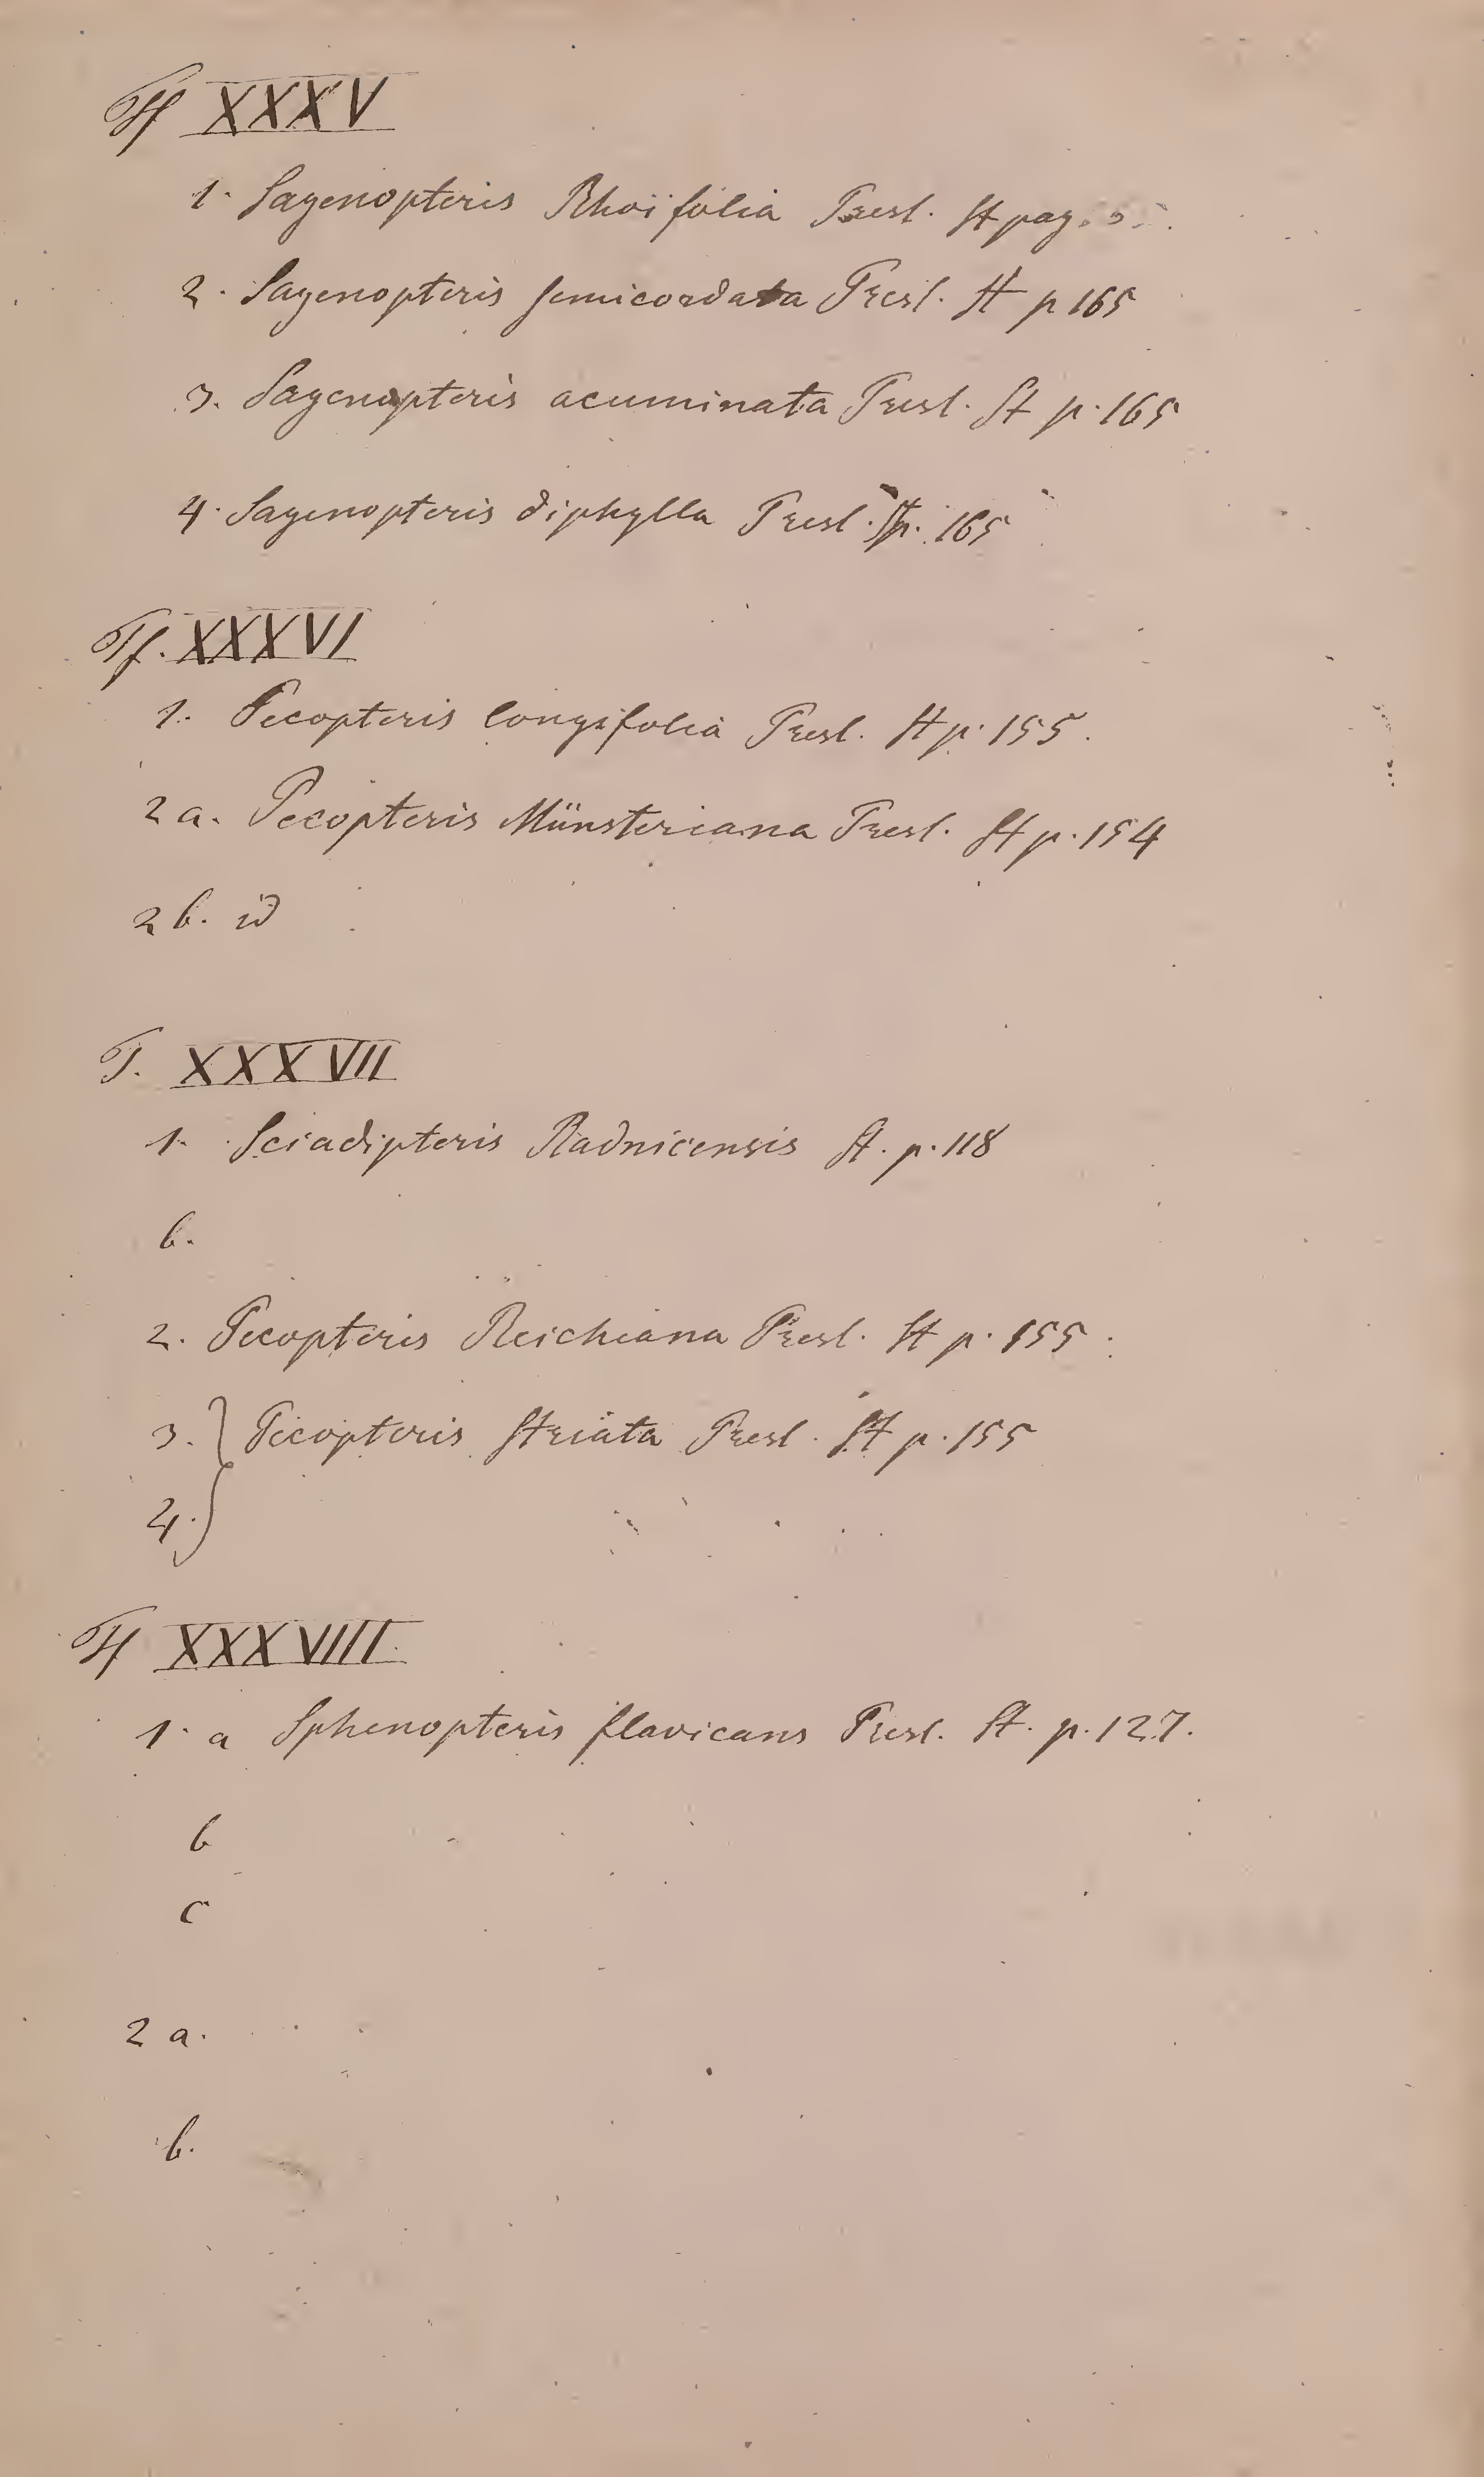 Tf XXXV
1. Sagenopteris Rhoifolia Presl. St pag.
2. Sagenopteris semicordata Presl. St p 165
3. Sagenopteris acuminata Presl. St p. 165
4. Sagenopteris diphylla Presl. St p. 165
Tf. XXXVI
1. Pecopteris longifolia Presl. St p. 155.
2 a. Pecopteris Münsteriana Presl. St p. 154
2 b. id
T. XXXVII
1. Sciadipteris Radnicensis St. p. 118
b.
2. Pecopteris Reichiana Presl. St p. 155
3. } Pecopteris striata Presl. St p. 155
4. }
Tf XXXVIII
1. a Sphenopteris flavicans Presl. St. p. 127.
b
c
2 a.
b.